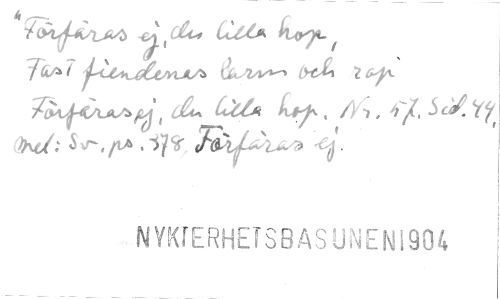 "Förfäras ej, du lilla hop,
Fast fiendenas larm och rop
Förfäras ej, du lilla hop. Nr. 57. Sid. 44.
mel: Sv. ps. 378. Förfäras ej.
NYKTERHETSBASUNEN 1904